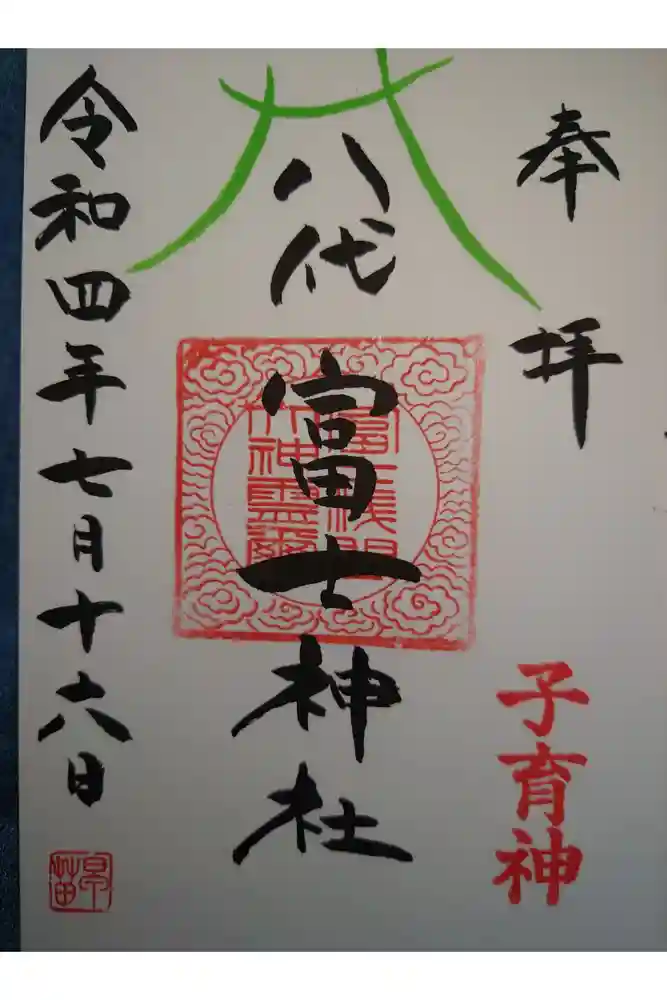 奉拝
子育神
八代富士神社
令和四年七月十六日